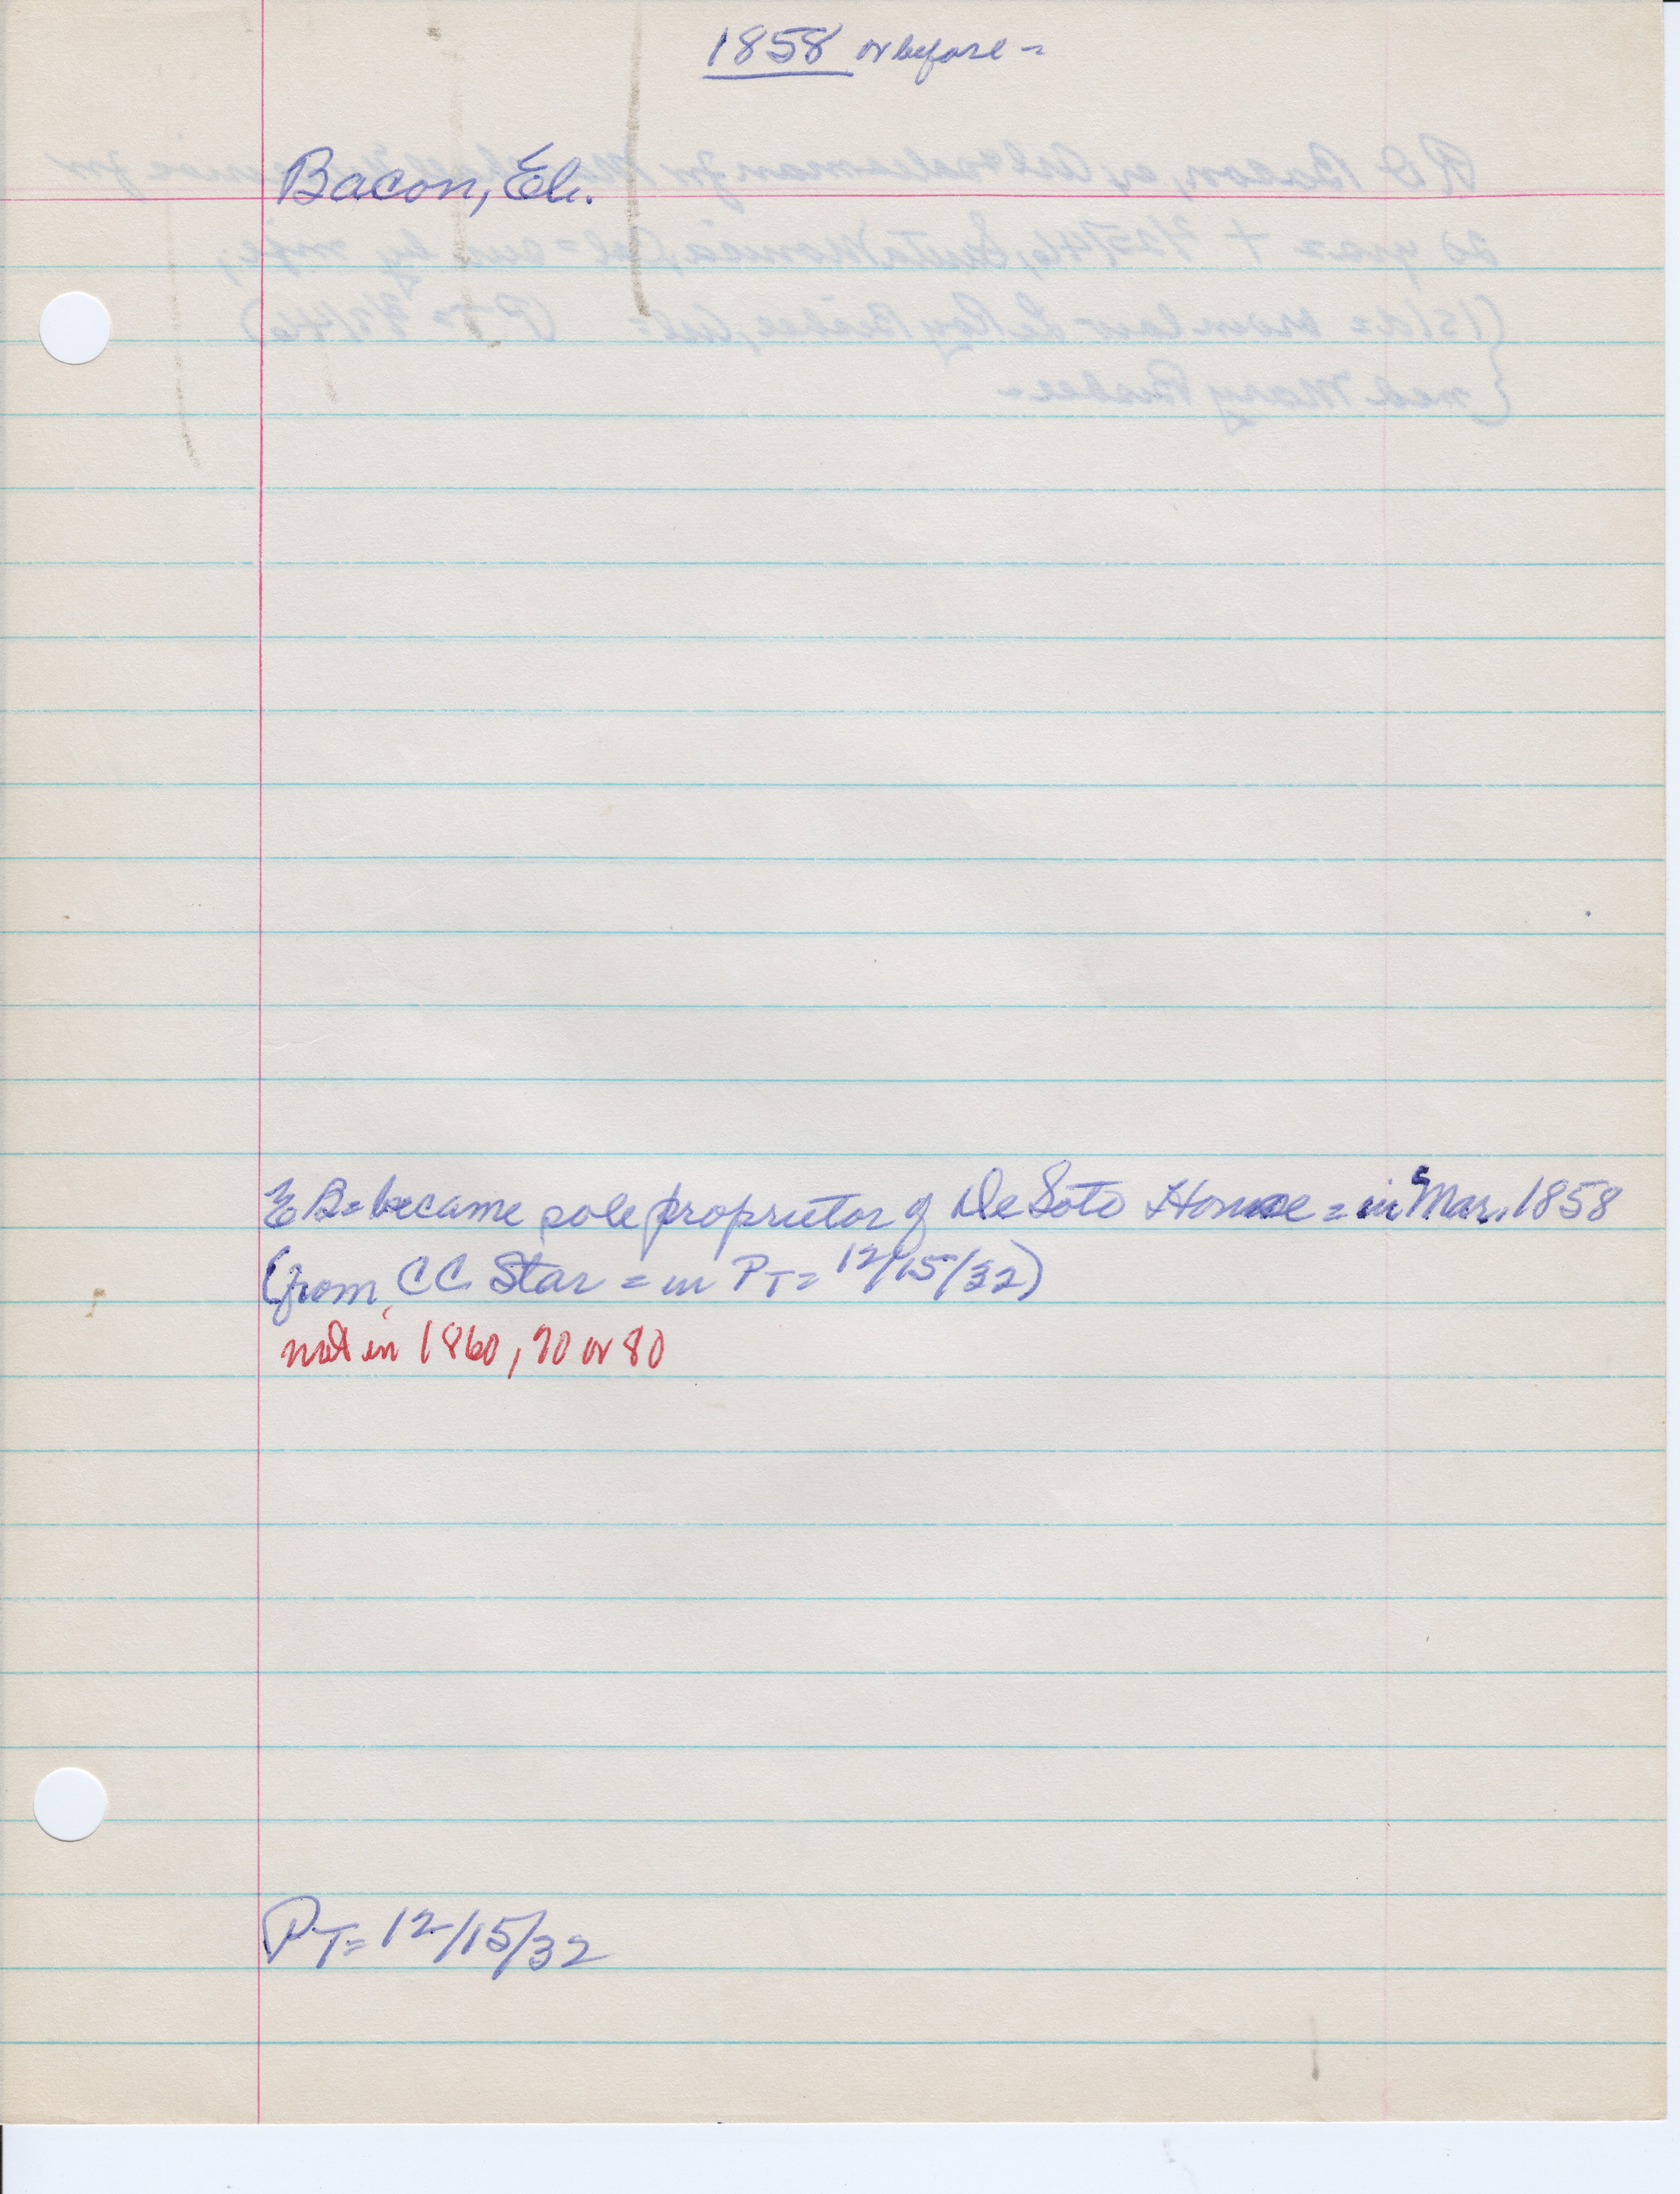 1858 or before =
Bacon, Eli.
EB = became sole proprietor of De Soto House = in Mar. 1858
(from CC Star = in PT = 12/15/32)
not in 1860, 70 or 80
PT = 12/15/32